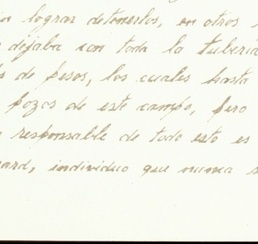 lograr detenerlos, en otros
dejaba con toda la tubería
de pesos, los cuales hasta
pozos de este campo, pero
responsable de todo esto es
individuo que nunca